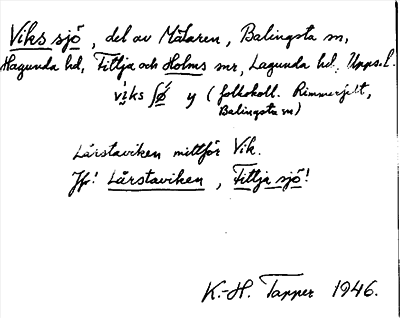 Viks sjö, del av Mälaren, Balingsta sn,
Hagunda hd, Fittja och Holms snr, Lagunda hd, Upps. l.
(folkskoll. Rimmerfelt,
Balingsta sn)
Lårstaviken mittför Vik.
Jfr! Lårstaviken, Fittja sjö!
K.-H. Tapper 1946.